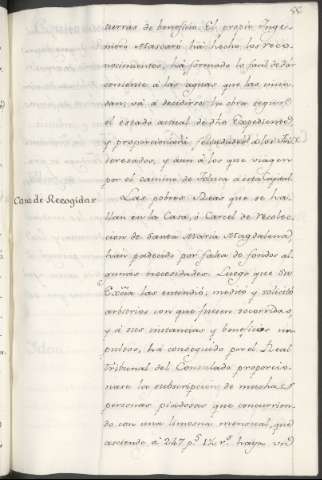 tierras de beneficio. El propio Inge-
niero Mascaró ha hecho los reco-
nocimientos, ha formado lo facil de dár
corriente á las aguas que las inun-
dan, vá á decidirse la obra segun
el estado actual de dho Expediente,
y proporcionará felicidades á los In-
teresados, y aun á los que viagen
por el camino de Toluca á esta Capital.
Casa de Recogidas
Las pobres Reas que se ha-
llan en la Casa, ó Carcel de recolec-
cion de Santa Maria Magdalena,
han padecido por falta de fondos al-
gunas necesidades. Luego que Su
Exc̃ia las entendió, meditó y solicitó
arbitrios con que fuesen socorridas,
y á sus instancias y beneficios im-
pulsos, há conseguido por el Real
Tribunal del Consulado proporcio-
nare la subscripcion de muchas
personas piadosas que concurrien-
do con una limosna mensual, que
asciende á 247 p.s 1½ r.s haya un